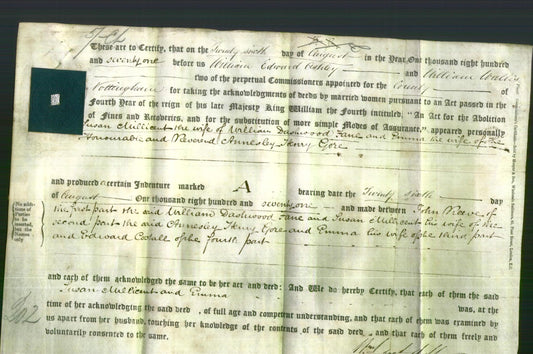 These are to Certify, that on the Twenty sixth day of August in the Year One thousand eight hundred
and seventy one before us William Edward Ashley and William
two of the perpetual Commissioners appointed for the County of
Nottingham for taking the acknowledgments of deeds by married women pursuant to an Act passed in the
Fourth Year of the reign of his late Majesty King William the Fourth intituled, "An Act for the Abolition
of Fines and Recoveries, and for the substitution of more simple Modes of Assurance," appeared personally
Susan Millicent the wife of William Dashwood Fane and Emma the wife of the
Honourable and Reverend Annesley Henry Gore
and produced a certain Indenture marked A bearing date the Twenty sixth day
of August One thousand eight hundred and seventy one and made between John Reeve of
the first part the said William Dashwood Fane and Susan Millicent his wife of the
second part the said Annesley Henry Gore and Emma his wife of the third part
and Edward of the fourth part
[No addition of Parties to be inserted, but the Names only]
and each of them acknowledged the same to be her act and deed: And We do hereby Certify, that each of them the said
Susan Millicent and Emma was, at the
time of her acknowledging the said deed, of full age and competent understanding, and that each of them was examined by
us apart from her husband, touching her knowledge of the contents of the said deed, and that each of them freely and
voluntarily consented to the same.